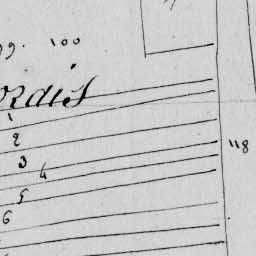 99. 100
ordis
1
2
3
4
5
6
118